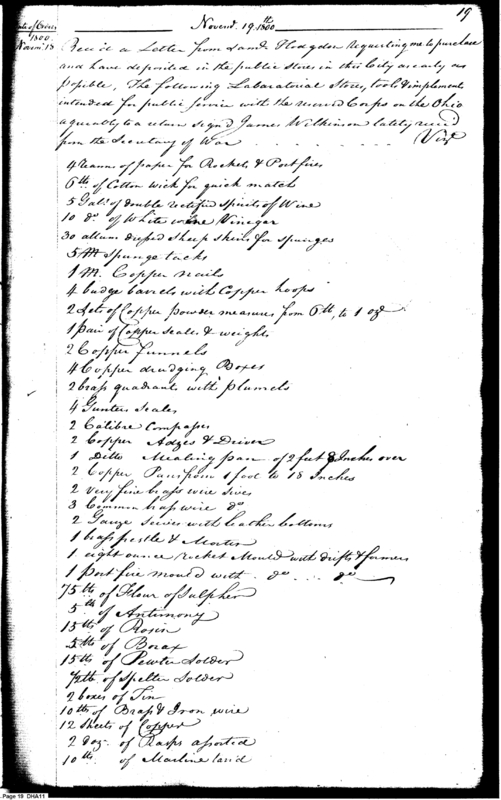 19
Novemb. 19th 1800
Date of Order
1800
Novem. 18
Recei'd a Letter from Saml. Hodgdon requesting me to purchase
and have deposited in the public stores in this City as early as
possible, The following Laboratorial Stores, tools & implements
intended for public service with the second Corps on the Ohio
agreeably to a return sign'd James Wilkinson lately receiv'd
from the Secretary of War . . . . . . . . Vizt
4 Reams of paper for Rockets & Portfires
6 lb. of Cotton wick for quick match
5 Gals. of double rectified Spirits of Wine
10 do. of White wine Vinegar
30 allum dressed Sheep Skins for spunges
5 M Spunge tacks
1 M. Copper nails
4 budge barrels with Copper hoops
2 Sets of Copper powder measures from 6 lb. to 1 oz
1 pair of Copper scales & weights
2 Copper funnels
4 Copper drudging Boxes
2 brass quadrants with plumets
4 Gunters Scales
2 Calibre Compasses
2 Copper Adzes & Driver
1 Ditto Mealing pan of 2 feet 8 Inches over
2 Copper Pans from 1 foot to 18 Inches
2 very fine brass wire sives
3 Common brass wire do
2 Gauze Seives with leather bottoms
1 brass pestle & Mortar
1 eight ounce rocket Mould with drifts & formers
1 port fire mould with . do . . . . do
75 lb of Flour of Sulpher
5 lb of Antimony
15 lb of Rosin
5 lb of Borax
15 lb of Pewter Solder
7 lb of Spelter Solder
2 boxes of Tin
10 lb of Brass & Iron wire
12 Sheets of Copper
2 Doz. of Rasps assorted
10 lb of Marline
Page 19 DHA11